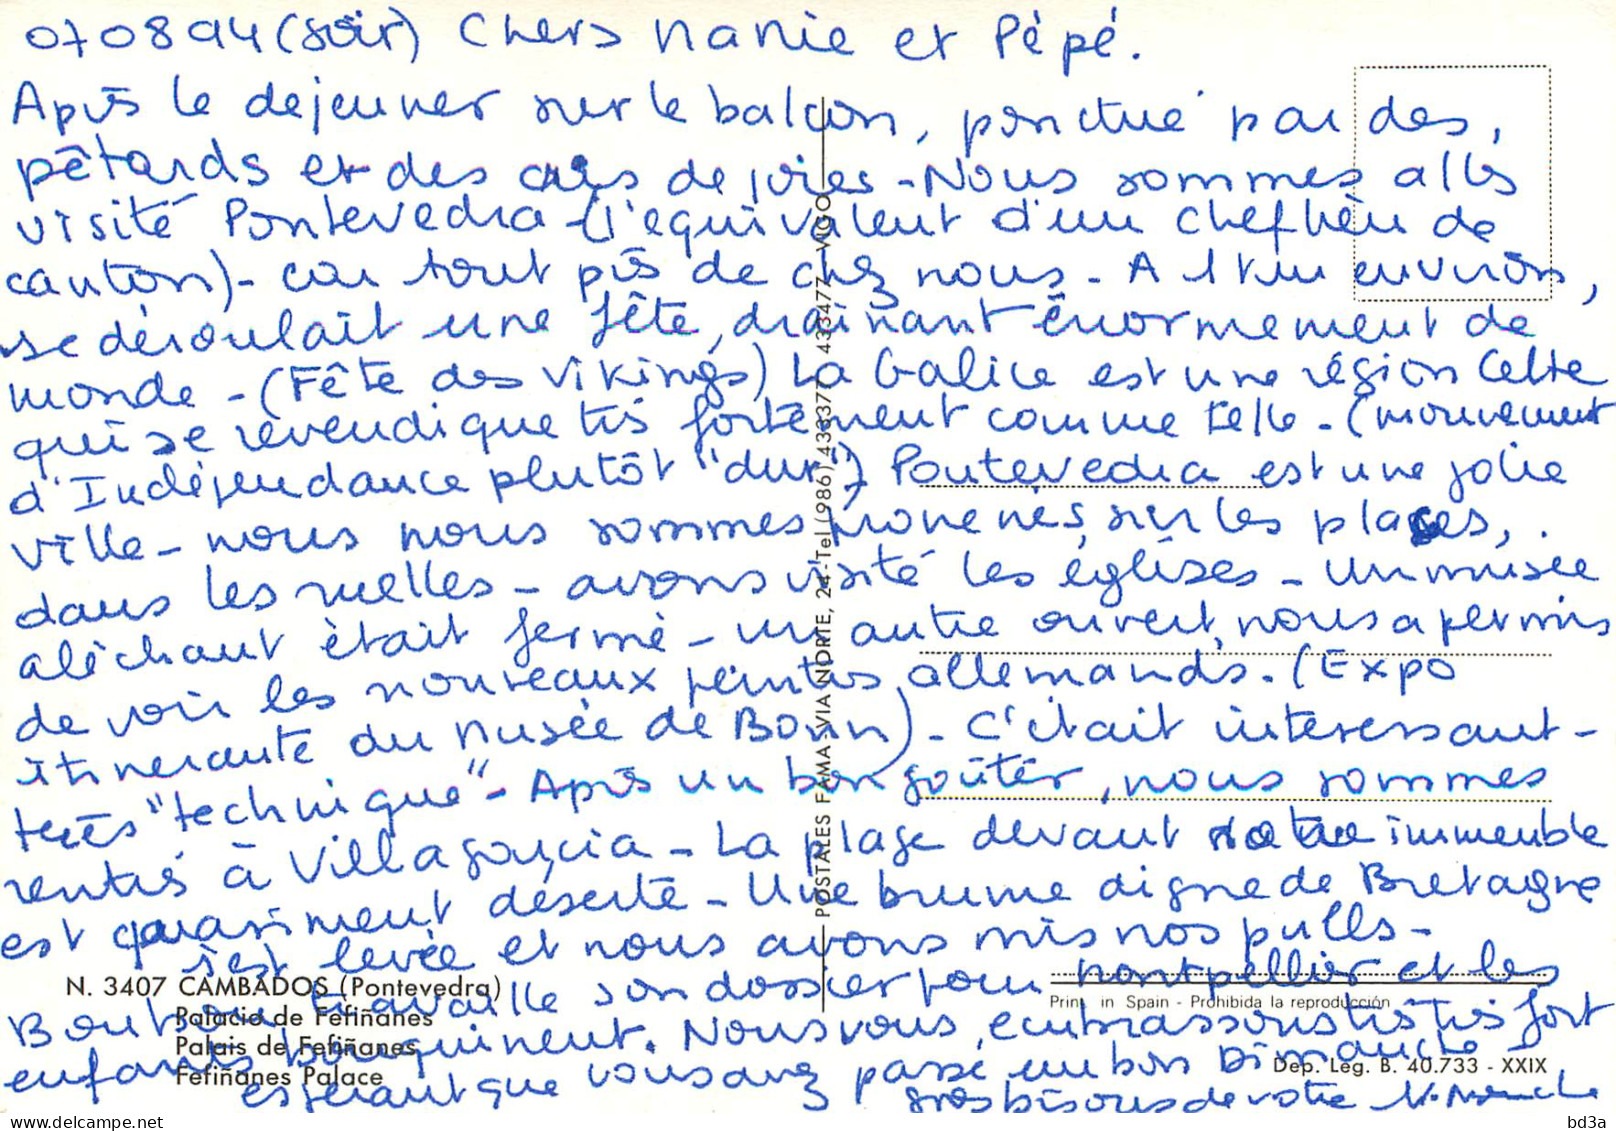 070894 (soir) Chers Manie et Pépé.
Après le dejeuner sur le balcon, ponctué par des
pêtards et des cris de joies - Nous sommes allés
visité Pontevedra (l'equivalent d'un chef lieu de
canton) - car tout près de chez nous - A 1 km environ,
se déroulait une fête, draînant énormement de
monde - (Fête des Vikings) La Galice est une région Celte
qui se revendique très fortement comme telle - (mouvement
d'Indépendance plutôt "dur") Pontevedra est une jolie
ville - nous nous sommes promenés, sur les places,
dans les ruelles - avons visité les églises - Un musée
aléchant était fermé - un autre ouvert, nous a permis
de voir les nouveaux peintres allemands. (Expo
itinerante du Musée de Bonn) - C'était interessant -
très "technique" - Après un bon goûter, nous sommes
rentrés à Villagarcia - La plage devant notre immeuble
est quasiment déserte - Une brume digne de Bretagne
s'est levée et nous avons mis nos pulls -
travaille son dossier pour Montpellier et les
enfants bouquinent. Nous vous embrassons très très fort
espérant que vous avez passé un bon Dimanche
gros bisous de votre
N. 3407 CAMBADOS (Pontevedra)
Palacio de Fefiñanes
Palais de Fefiñanes
Fefiñanes Palace
POSTALES FAMA - VIA NORTE, 24 - Tel (986) 433377 - 433477 - VIGO
Print in Spain - Prohibida la reproducción
Dep. Leg. B. 40.733 - XXIX
delcampe.net
bd3a